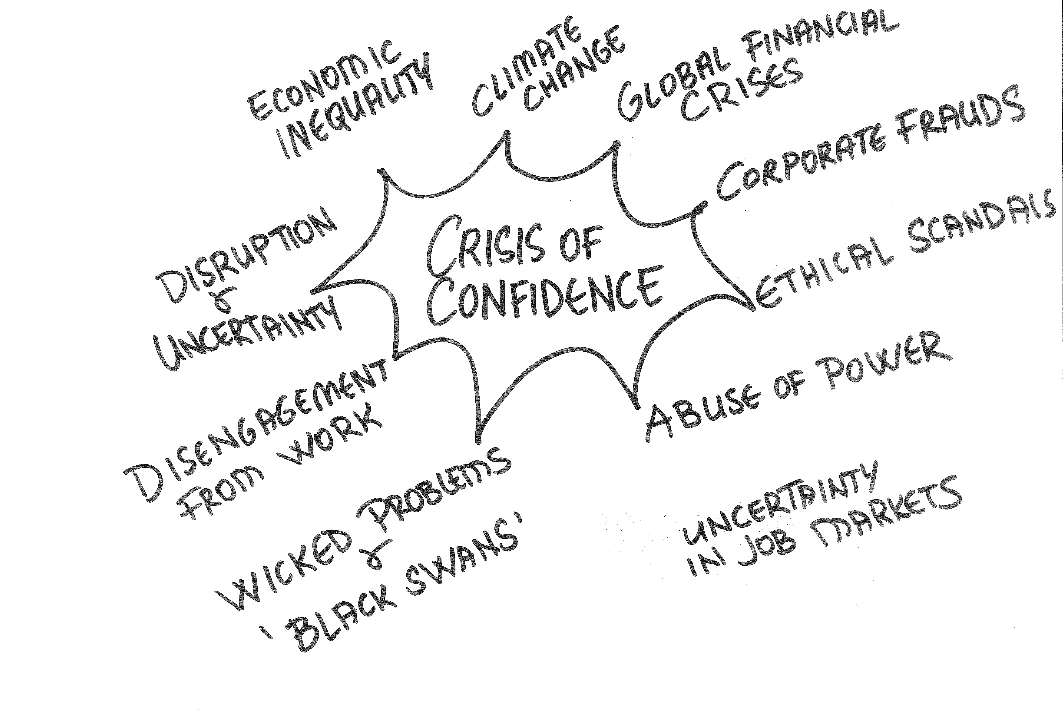 ECONOMIC
INEQUALITY
CLIMATE
CHANGE
GLOBAL FINANCIAL
CRISES
CORPORATE FRAUDS
ETHICAL SCANDALS
ABUSE OF POWER
UNCERTAINTY
IN JOB MARKETS
WICKED PROBLEMS
&
'BLACK SWANS'
DISENGAGEMENT
FROM WORK
DISRUPTION
&
UNCERTAINTY
CRISIS OF
CONFIDENCE